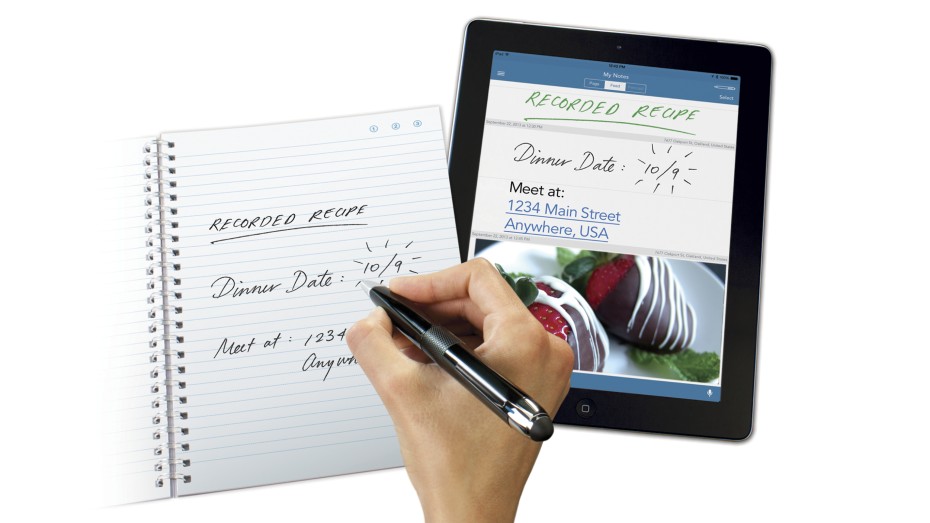 RECORDED RECIPE
Dinner Date : 10/9
Meet at : 1234
My Notes
Page Feed
Select
RECORDED RECIPE
Dinner Date : 10/9
Meet at:
1234 Main Street
Anywhere, USA